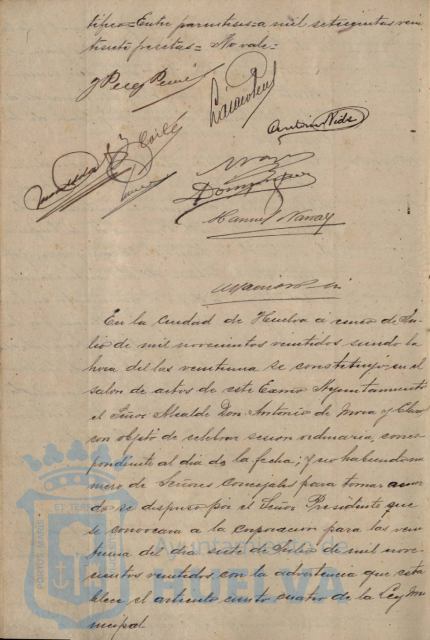 tífico = Entre parentesis = a mil setecientas vein
tisiete pesetas = No vale =
Antonio Vides
Domínguez
Manuel Naray
En la Ciudad de Huelva a cinco de Ju-
lio de mil novecientos veintidos siendo la
hora de las veintiuna se constituyó en el
salon de actos de este Excmo Ayuntamiento
el Señor Alcalde Don Antonio de Mora y Claro
con objeto de celebrar sesion ordinaria, corres
pondiente al dia de la fecha; y no habiendo nu
mero de Señores Concejales para tomar acuer
do se dispuso por el Señor Presidente que
se convocara a la Corporacion para las vein
tiuna del dia siete de Julio de mil nove
cientos veintidos, con la advertencia que esta
blece el articulo ciento cuatro de la Ley Mu
nicipal.
Ayuntamiento de
HUELVA